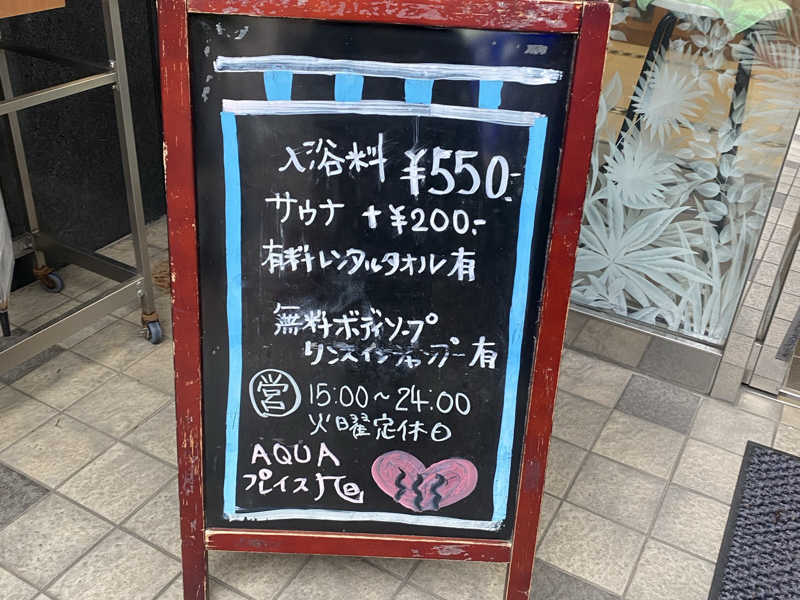 入浴料 ¥550.-
サウナ +¥200.-
有料レンタルタオル有
無料ボディソープ
リンスインシャンプー有
営 15:00~24:00
火曜定休日
AQUA
プレイス旭